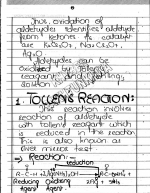 Thus, oxidation of
aldehydes identifies aldehyde
from ketones. As catalyst
are K₂Cr₂O₇, Na₂Cr₂O₇,
Ag₂O.
Aldehydes can be
oxidized by Tollen's
reagent and Fehling
solution.
1. TOLLEN'S REACTION:
This reaction involves
reaction of aldehyde
with Tollen's reagent which
is reduced in the reaction
This is also known as
silver mirror test
⇒ Reaction:-
reduction
Reducing Oxidising
Agent Agent